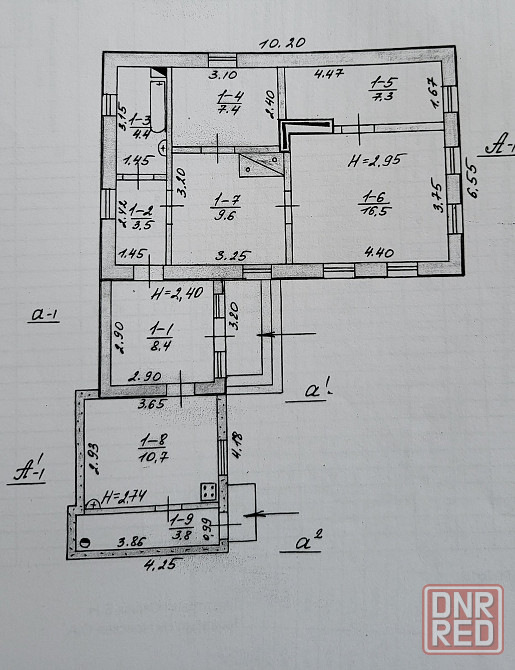 10.20
3.10
4.47
1-5
7.3
1.67
1-4
7.4
2.40
3.15
1-3
4.4
A-1
H=2.95
1.45
3.20
6.55
2.42
1-2
3.5
1-7
9.6
1-6
16.5
3.75
1.45
3.25
4.40
H=2,40
a-1
2.90
1-1
8,4
3.20
2.90
a¹
3.65
1-8
10,7
2.93
4.18
A¹-1
H=2.74
1-9
3,8
0.99
3.86
a²
4.25
DNR
RED